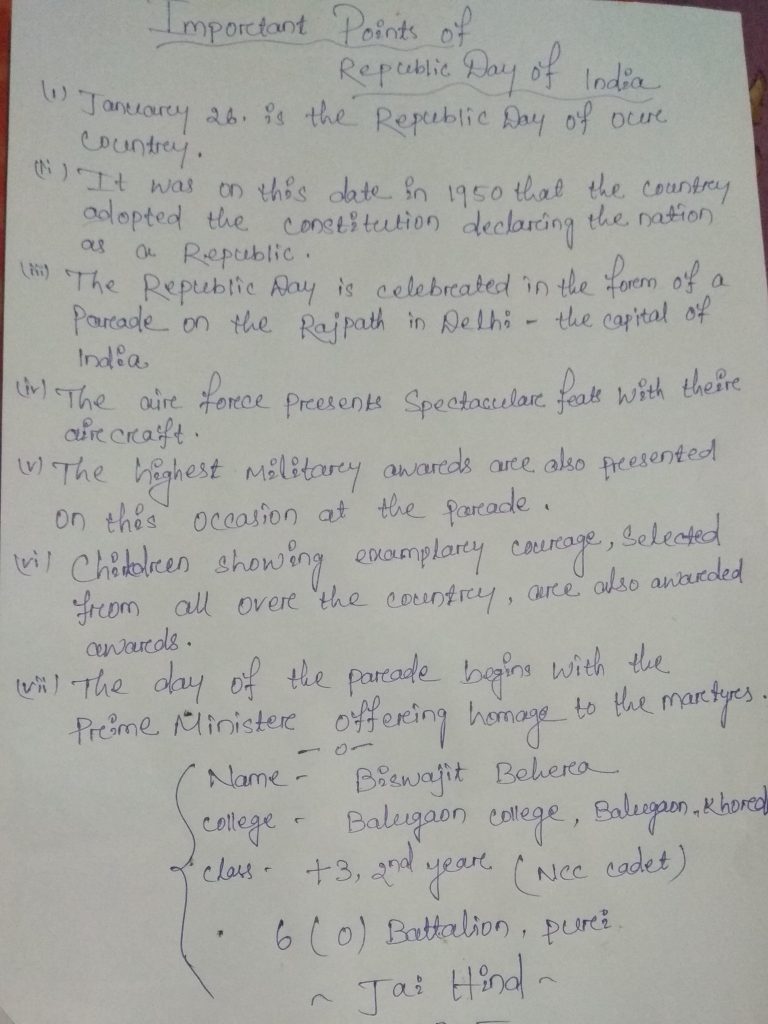 Important Points of
Republic Day of India
(i) January 26. is the Republic Day of our
country.
(ii) It was on this date in 1950 that the country
adopted the constitution declaring the nation
as a Republic.
(iii) The Republic Day is celebrated in the form of a
Parade on the Rajpath in Delhi - the capital of
India
(iv) The air force presents Spectacular feats with their
aircraift.
(v) The highest Military awards are also presented
on this occasion at the parade.
(vi) Children showing examplary courage, Selected
from all over the country, are also awarded
awards.
(vii) The day of the parade begins with the
Prime Minister offering homage to the martyrs.
- 0 -
Name - Biswajit Behera
college - Balugaon college, Balugaon, Khored
class - +3, 2nd year (NCC cadet)
. 6 (0) Battalion, puri
~ Jai Hind ~